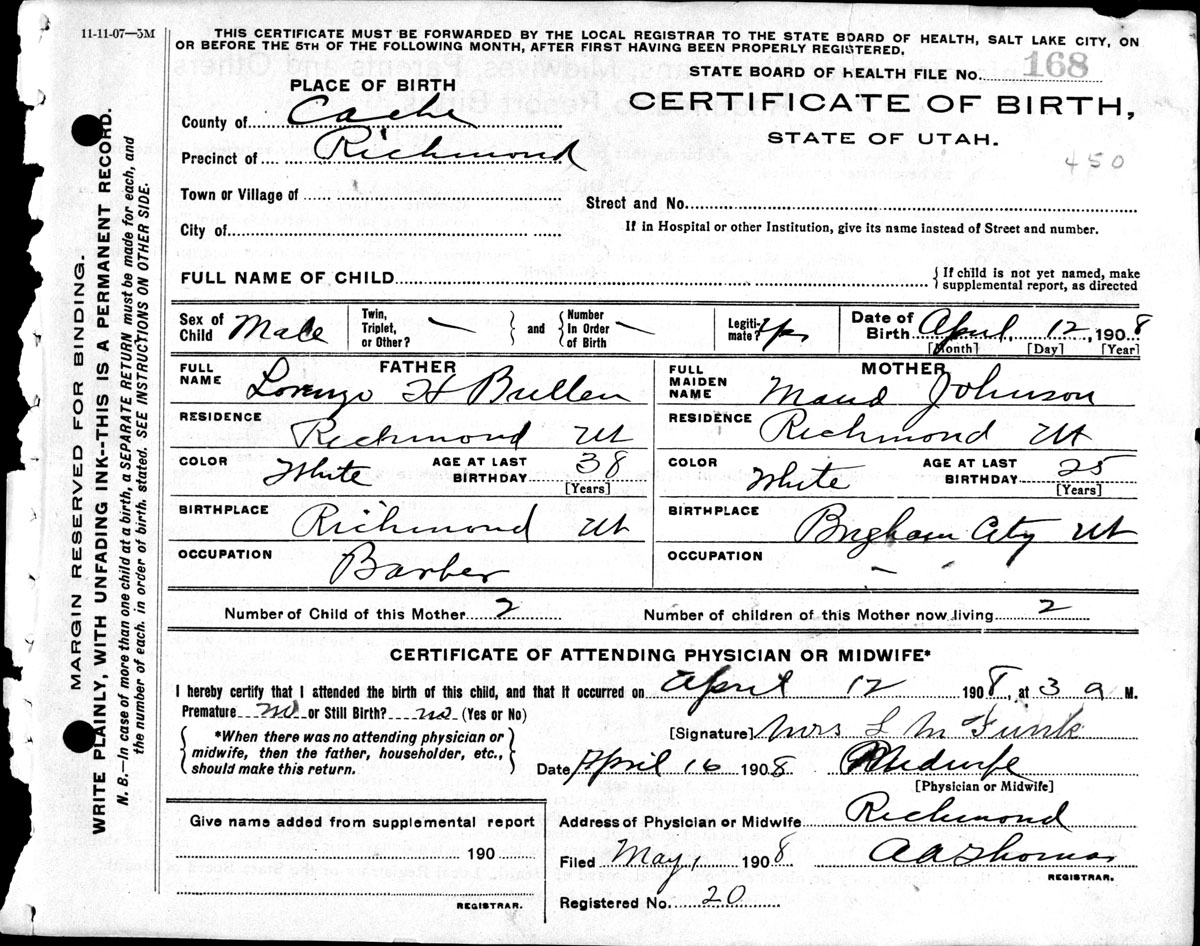 11-11-07—5M
THIS CERTIFICATE MUST BE FORWARDED BY THE LOCAL REGISTRAR TO THE STATE BOARD OF HEALTH, SALT LAKE CITY, ON
OR BEFORE THE 5TH OF THE FOLLOWING MONTH, AFTER FIRST HAVING BEEN PROPERLY REGISTERED.
STATE BOARD OF HEALTH FILE No. 168
PLACE OF BIRTH
CERTIFICATE OF BIRTH,
STATE OF UTAH.
450
County of Cache
Precinct of Richmond
Town or Village of
Street and No.
City of
If in Hospital or other Institution, give its name instead of Street and number.
FULL NAME OF CHILD
{ If child is not yet named, make
supplemental report, as directed
Sex of Child Male
Twin, Triplet, or Other? — } and { Number In Order of Birth —
Legiti-mate? Yes
Date of Birth April, 12, 1908
[Month] [Day] [Year]
FATHER
FULL NAME Lorenzo H Bullen
RESIDENCE Richmond Ut
COLOR White AGE AT LAST BIRTHDAY 38
[Years]
BIRTHPLACE Richmond Ut
OCCUPATION Barber
MOTHER
FULL MAIDEN NAME Maud Johnson
RESIDENCE Richmond Ut
COLOR White AGE AT LAST BIRTHDAY 25
[Years]
BIRTHPLACE Brigham City Ut
OCCUPATION —
Number of Child of this Mother 2 Number of children of this Mother now living 2
CERTIFICATE OF ATTENDING PHYSICIAN OR MIDWIFE*
I hereby certify that I attended the birth of this child, and that it occurred on April 12 1908, at 3 a M.
Premature no or Still Birth? no (Yes or No)
{ *When there was no attending physician or
midwife, then the father, householder, etc.,
should make this return. }
[Signature] Mrs L M Funk
Date April 16 1908 Midwife
[Physician or Midwife]
Address of Physician or Midwife Richmond
Filed May 1 1908 A A Thomas
REGISTRAR.
Registered No. 20
Give name added from supplemental report
190
REGISTRAR.
MARGIN RESERVED FOR BINDING.
WRITE PLAINLY, WITH UNFADING INK--THIS IS A PERMANENT RECORD.
N. B.—In case of more than one child at a birth, a SEPARATE RETURN must be made for each, and
the number of each, in order of birth, stated. SEE INSTRUCTIONS ON OTHER SIDE.